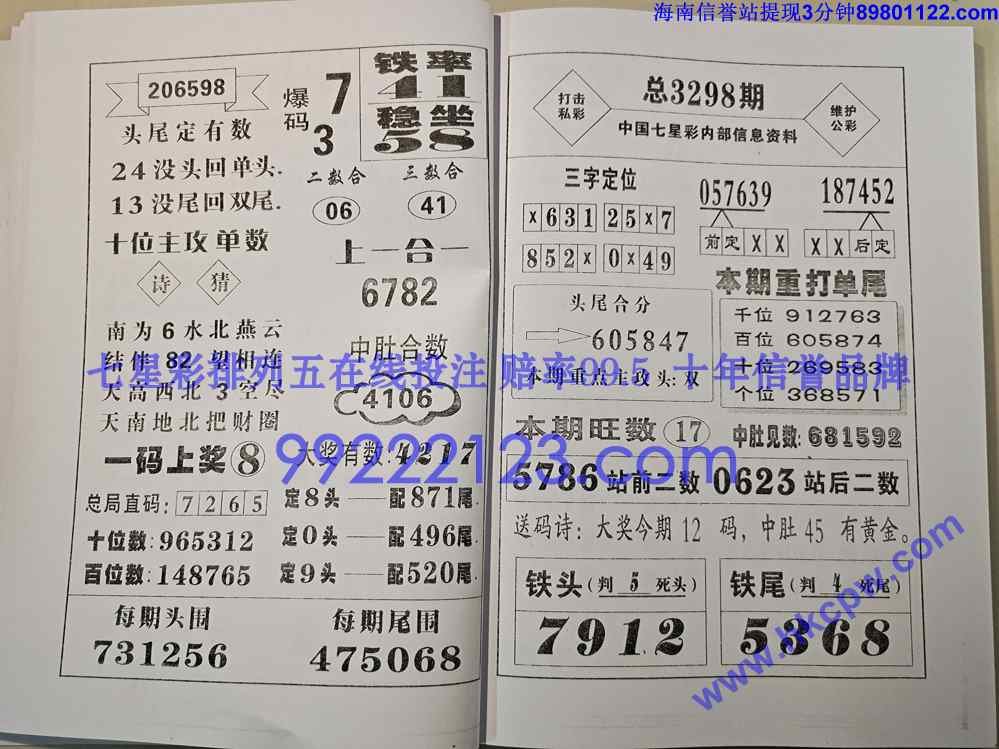 海南信誉站提现3分钟89801122.com
206598
头尾定有数
24没头回单头.
13没尾回双尾.
十位主攻单数
诗 猜
南为6水北燕云
结伴82望相连
天高西北3空尽
天南地北把财圈
一码上奖8
总局直码:7265
十位数:965312
百位数:148765
爆码
7
3
铁率
41
稳坐
58
二数合 三数合
06 41
上一合一
6782
中肚合数
4106
大奖有数:4217
定8头——配871尾.
定0头——配496尾.
定9头——配520尾.
每期头围
731256
每期尾围
475068
打击私彩
总3298期
中国七星彩内部信息资料
维护公彩
三字定位
×631 25×7
852× 0×49
057639
前定××
187452
××后定
头尾合分
605847
本期重点主攻头:双
本期重打单尾
千位 912763
百位 605874
十位 269583
个位 368571
本期旺数17
中肚见数:681592
5786站前二数 0623站后二数
送码诗:大奖今期12码,中肚45有黄金。
铁头(判5死头)
7912
铁尾(判4死尾)
5368
七星彩排列五在线投注 赔率99.5 十年信誉品牌
99222123.com
www.hkcpw.com